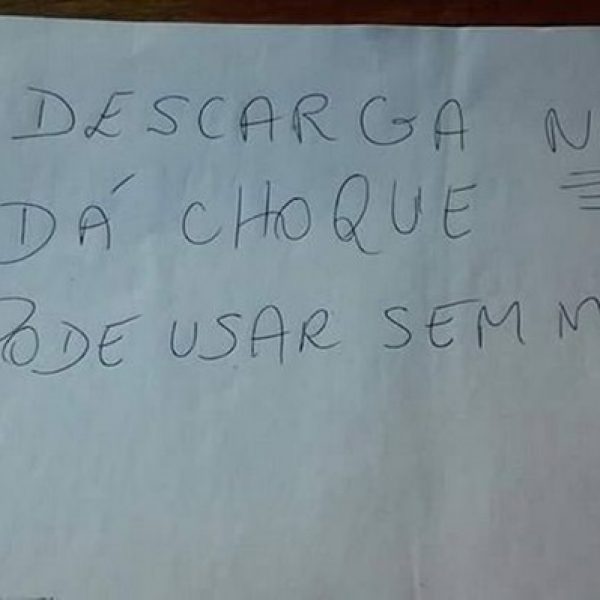 DESCARGA N
DÁ CHOQUE
PODE USAR SEM M